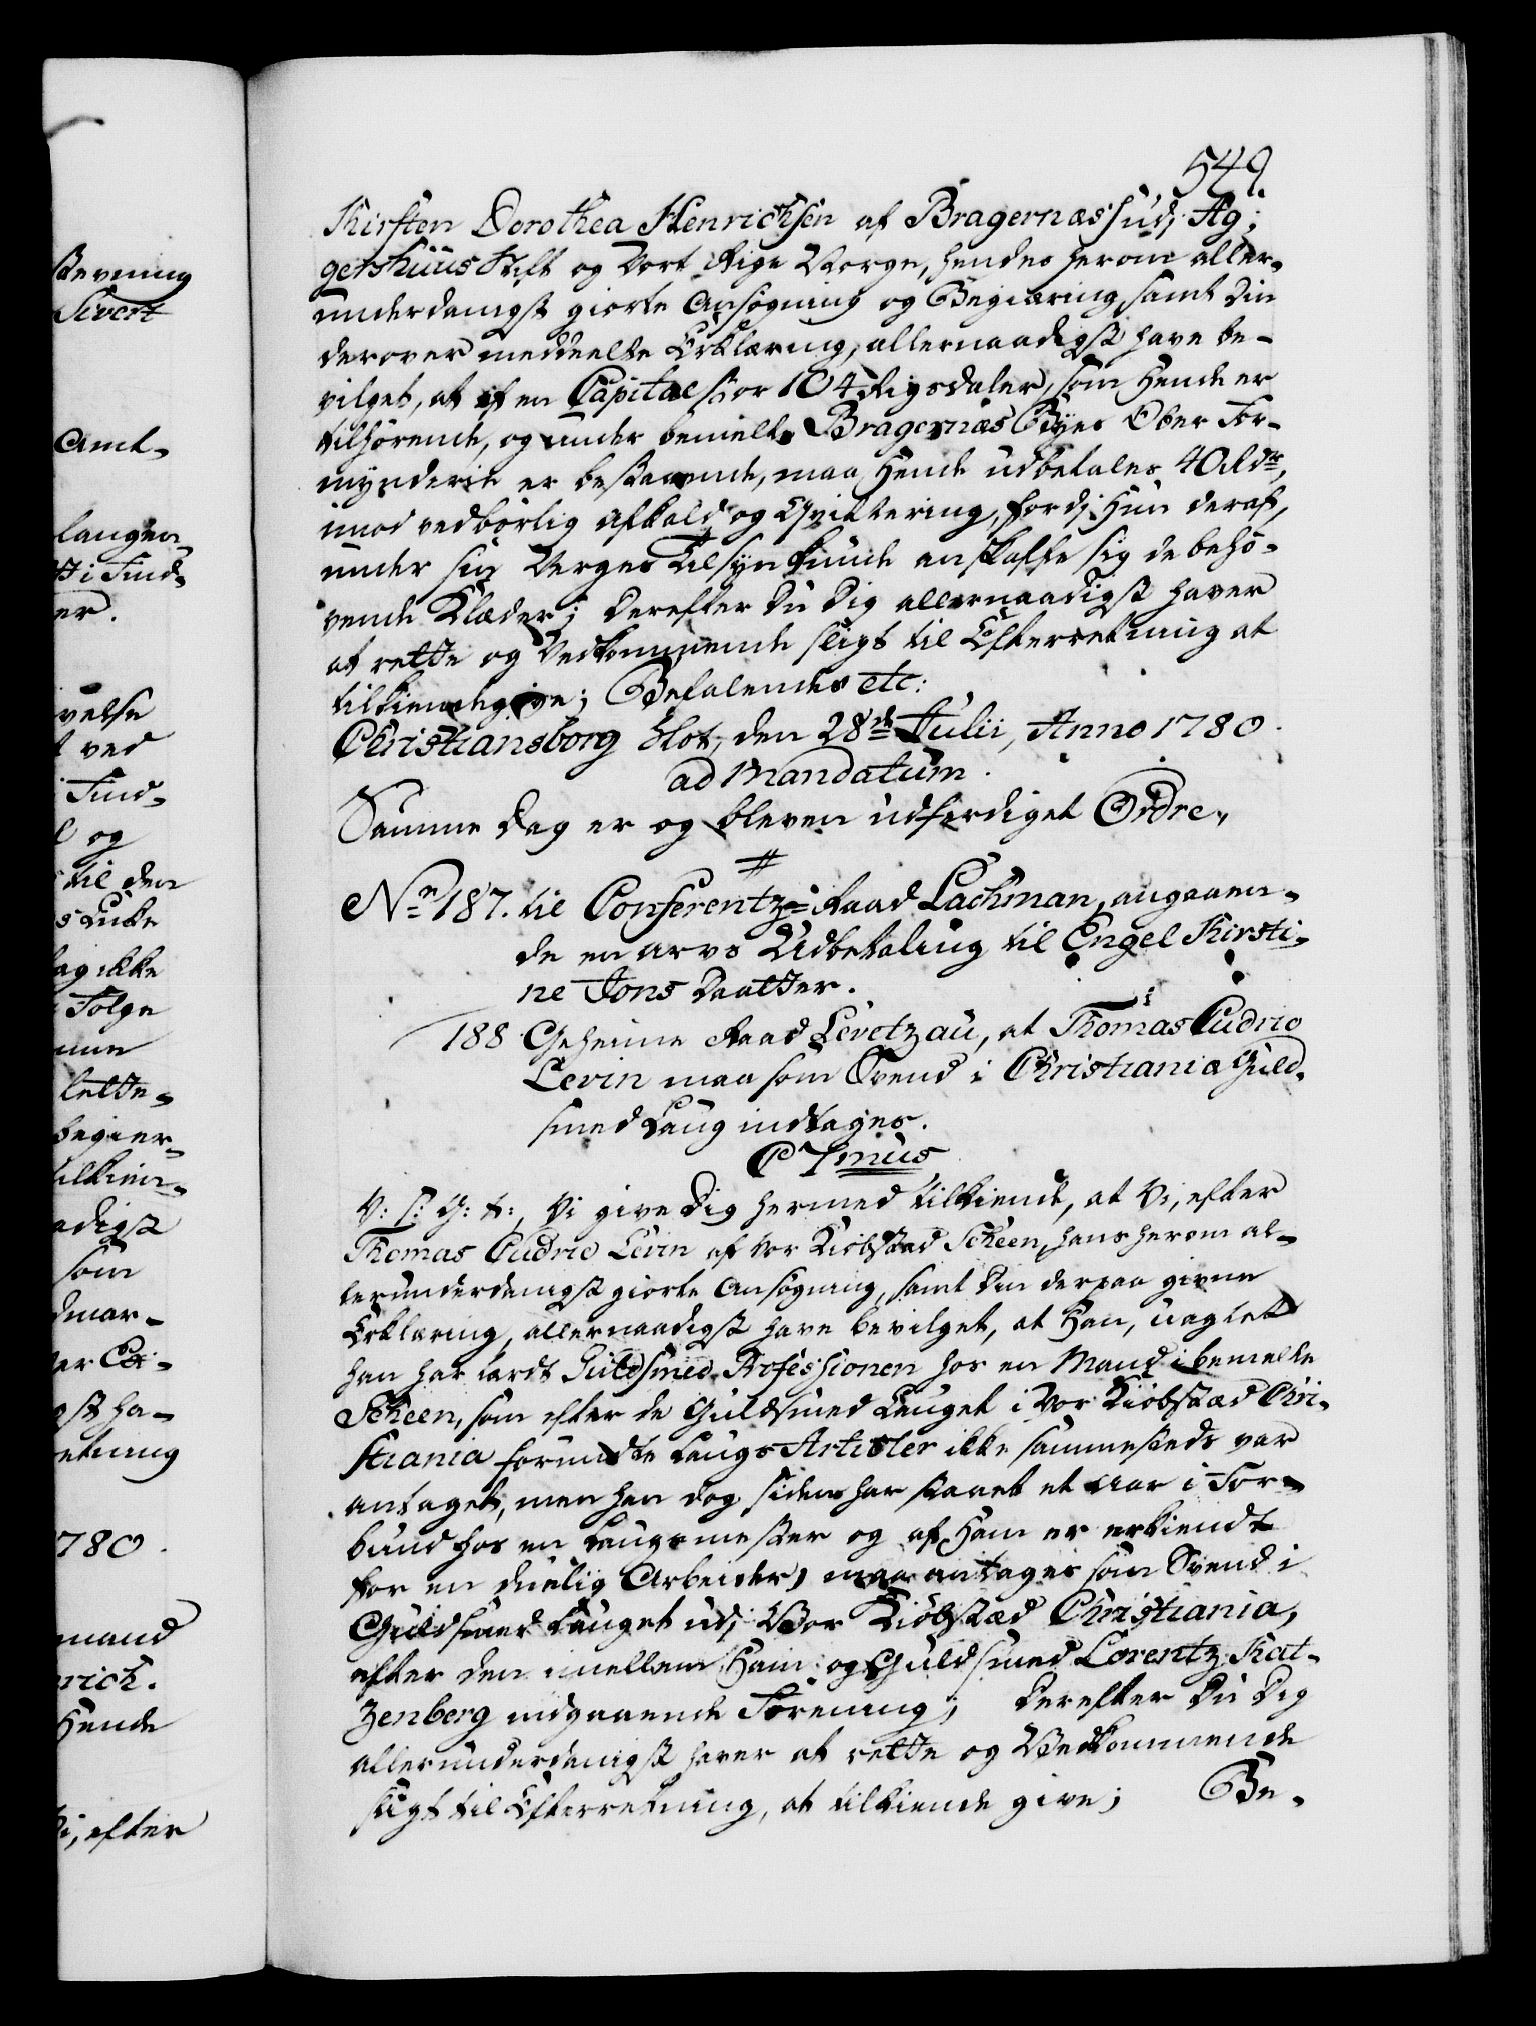 549
Kirsten Dorothea Henrichsen af Bragernæs udj Ag-
gershuus Stift og Vort Rige Norge, hendes herom aller-
underdanigst giorte Ansøgning og Begiæring, samt Din
derover meddeelte Erklæring, allernaadigst have be-
vilget, at af en Capital stor 104 Rigsdaler, som Hende er
tilhørende, og under bemelte Bragernæs Byes Over For-
mynderie er bestaaende, maa Hende udbetales 40 Rdr,
imod vedbørlig Afkald og Qvittering, fordj Hun deraf,
under sin Verges Tilsyn kunde anskaffe sig de behø-
vende Klæder; Derefter Du Dig allernaadigst haver
at rette og Vedkommende sligt til Efterretning at
tilkiendegive; Befalendes etc:
Christiansborg Slot, den 28de Julii, Anno 1780.
ad Mandatum.
Samme Dag er og bleven udferdiget Ordre,
#
Nr 187. til Conferentz-Raad Lachman, angaaen-
de en arvs Udbetaling til Engel Kirsti-
ne Jons Daatter.
188 Geheime Raad Levetzau, at Thomas Cudrio
Levin maa som Svend i Christiania Guld-
smed Laug indtages.
C 7mus
V: S: G: t:, Vi give Dig hermed tilkiende, at Vi, efter
Thomas Cudrio Levin af vor Kiøbstad Scheen, hans herom al-
lerunderdanigst giorte Ansøgning, samt Din derpaa givne
Erklæring, allernaadigst have bevilget, at Han, uagtet
han har lærdt Guldsmed-Professionen hos en Mand i bemelte
Scheen, som efter de Guldsmed Lauget i Vor Kiøbstæd Chri-
stiania forundte Laugs Artikler ikke sammesteds var
antaget, men han dog siden har staaet et Aar i For-
bund hos en Laugsmester og af Ham er erkiendt
for en duelig Arbeider, maa antages som Svend i
Guldsmed Lauget udj Vor Kiøbstæd Christiania,
efter den mellem Ham og Guldsmed Lorentz Kat-
zenberg indgaaende Forening; Derefter Du Dig
allerunderdanigst haver at rette og Vedkommende
sligt til Efterretning, at tilkiende give; Be-